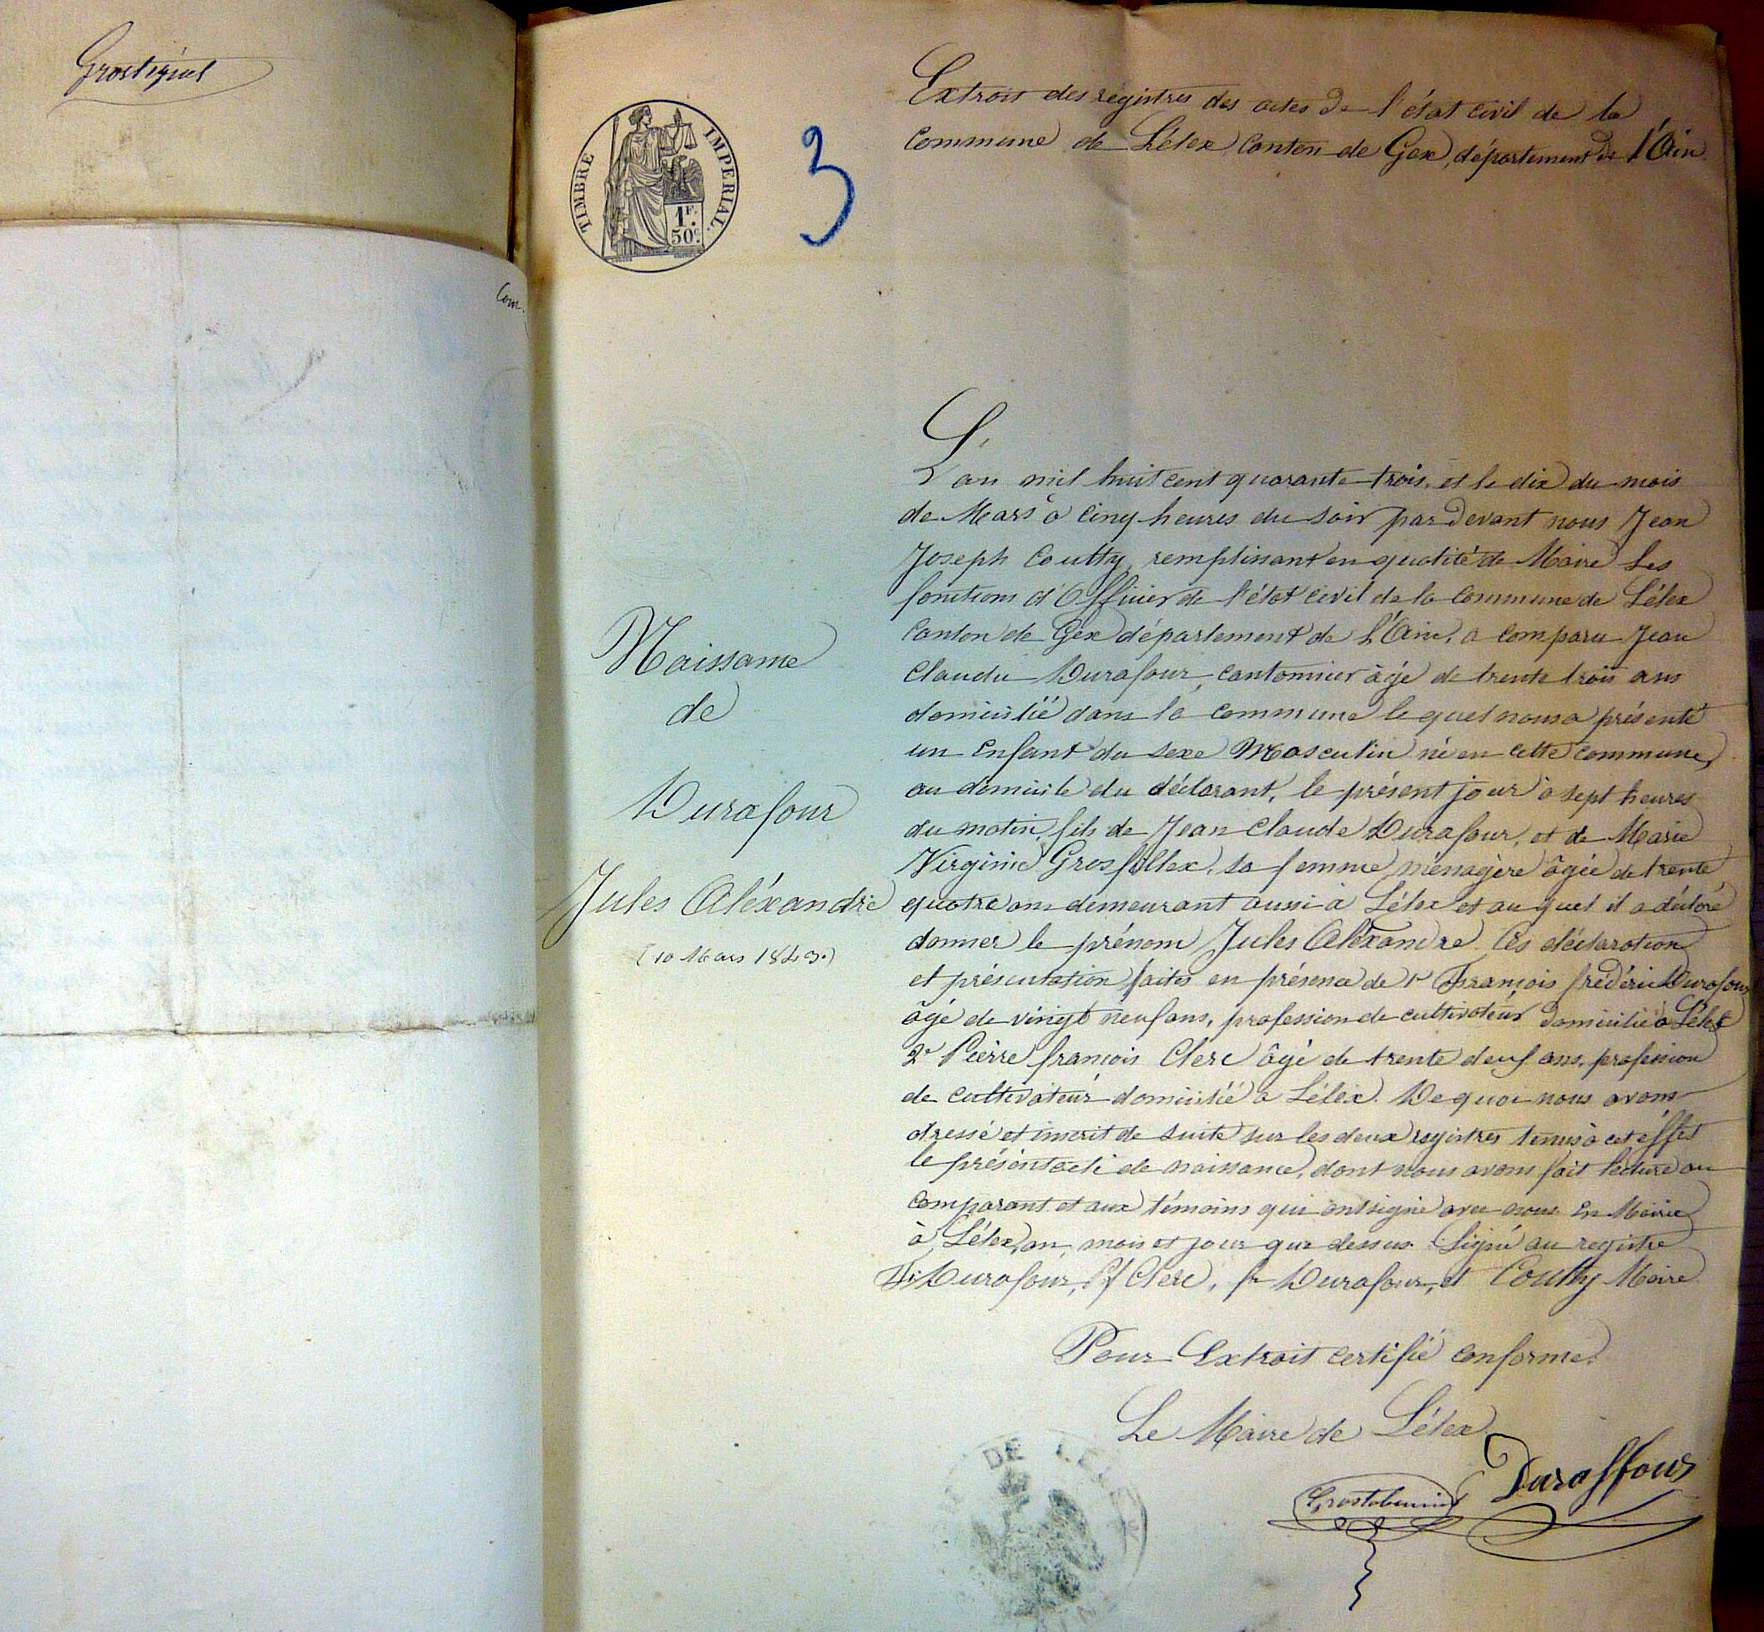 Com.
TIMBRE IMPERIAL.
1F. 50c.
3
Extrait des registres des actes de l'état civil de la
Commune de Lélex, Canton de Gex, département de l'Ain
Naissance
de
Durafour
Jules Aléxandre
(10 Mars 1843.)
L'an mil huit cent quarante trois, et le dix du mois
de Mars à Cinq heures du soir par devant nous Jean
Joseph Coutty, remplissant en qualité de Maire Les
fonctions d'Officier de l'état civil de la Commune de Lélex
Canton de Gex département de L'Ain, a comparu Jean
Claude Durafour, cantonnier âgé de trente trois ans
domicilié dans la commune lequel nous a présenté
un Enfant du sexe Masculin né en cette commune,
au domicile du déclarant, le présent jour à sept heures
du matin, fils de Jean Claude Durafour, et de Marie
Virginie Grosfillex, sa femme, ménagère âgée de trente
quatre ans demeurant aussi à Lélex et auquel il a déclaré
donner le prénom Jules Aléxandre. Ces déclaration
et présentation faites en présence de 1° François frédéric Durafour
âgé de vingt neuf ans, profession de cultivateur domicilié à Lélex
2° Pierre françois Clerc âgé de trente deux ans, profession
de cultivateur domicilié à Lélex. De quoi nous avons
dressé et inscrit de suite sur les deux registres tenus à cet éffet
le présént acte de naissance, dont nous avons fait lecture au
comparant et aux témoins qui ont signé avec nous En Mairie
à Lélex, an, mois et jour que dessus. Signé au registre
Durafour, Pf Clerc, fr Durafour, et Coutty Maire
Pour Extrait certifié conforme.
Le Maire de Lélex
Duraffour
DE LELEX